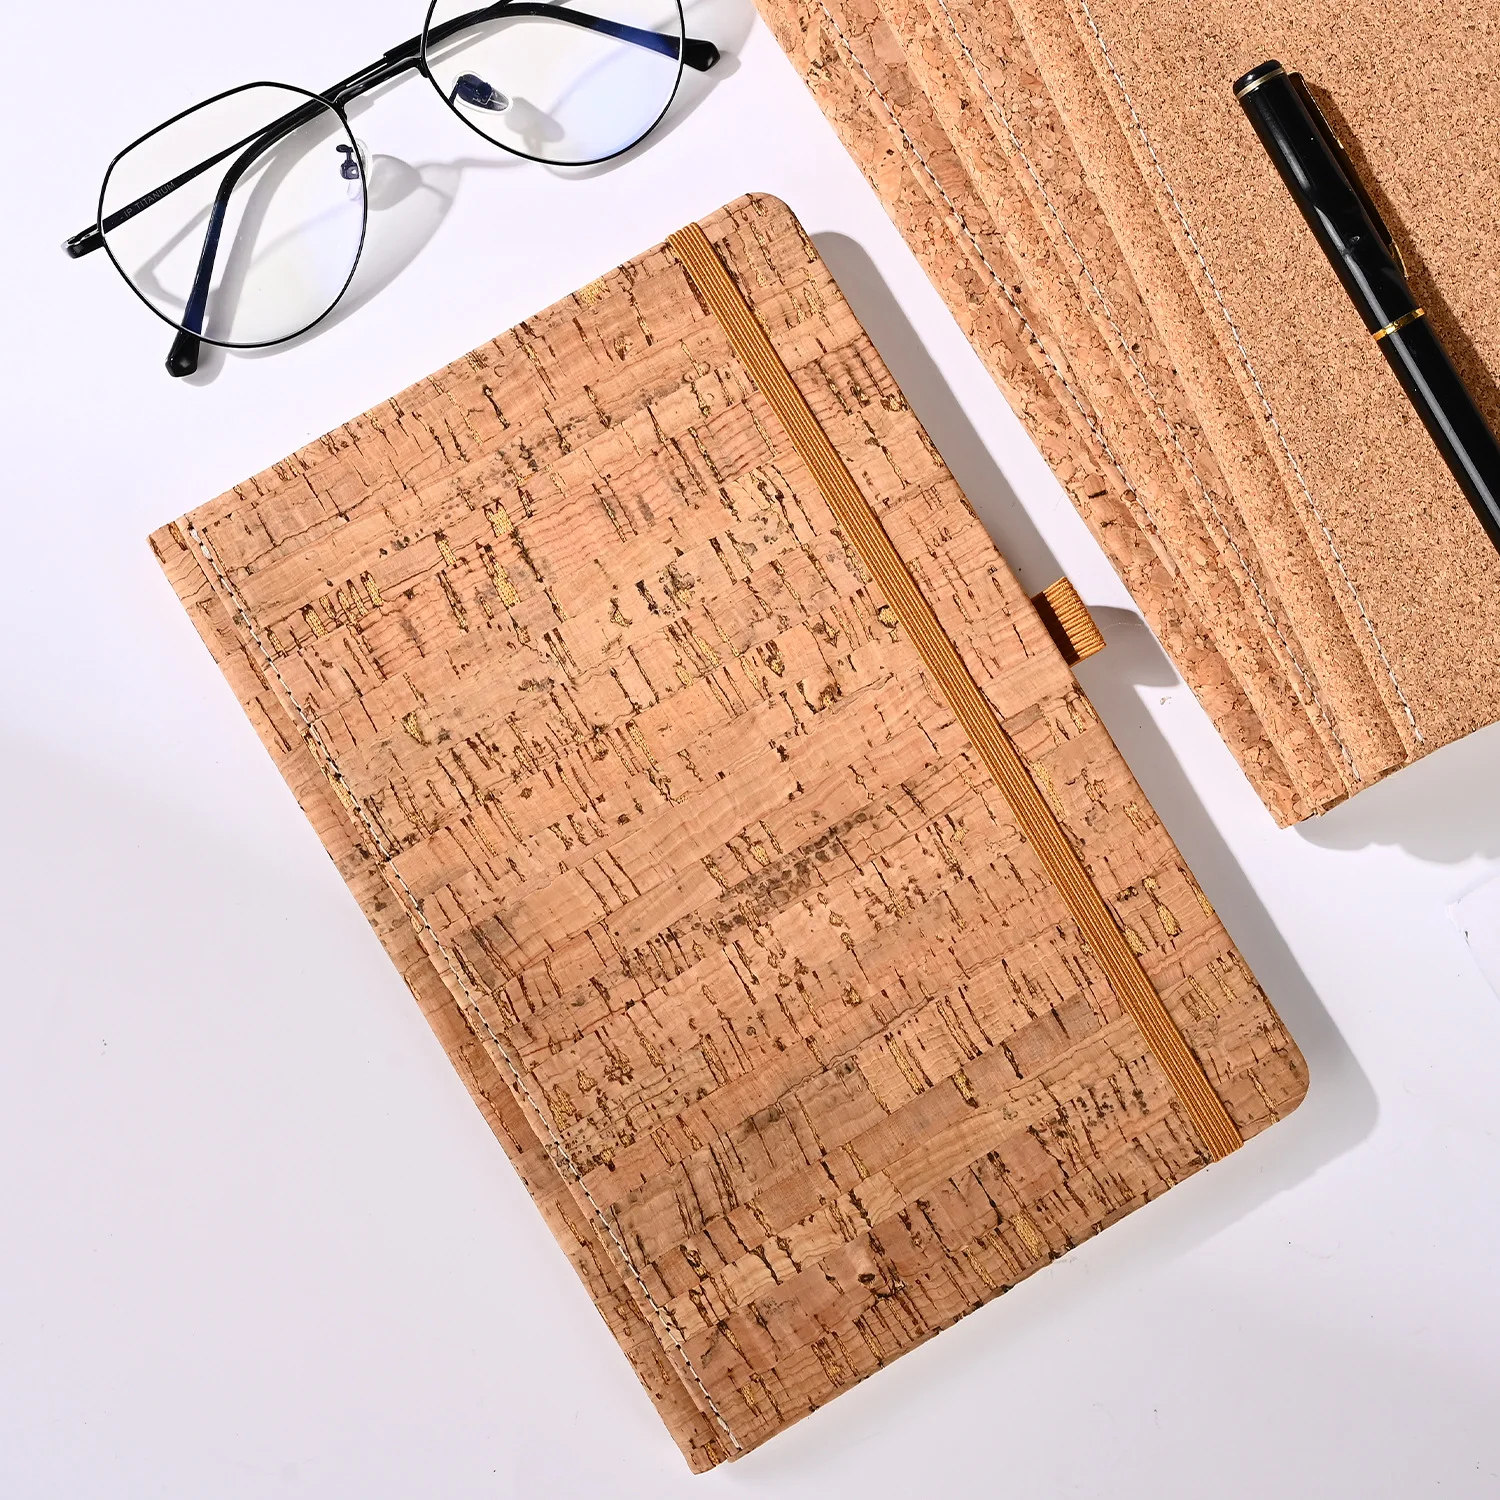 -IP TITANIUM